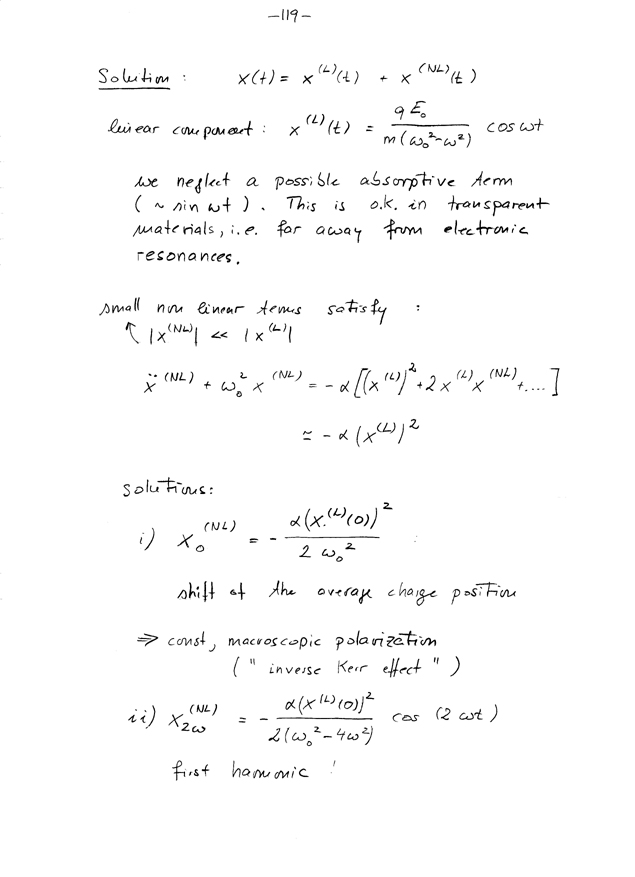 -119-
Solution : x(t) = x^(L)(t) + x^(NL)(t)
linear component : x^(L)(t) = qE₀ / m(ω₀²-ω²) cos ωt
we neglect a possible absorptive term
(~ sin ωt). This is o.k. in transparent
materials, i.e. far away from electronic
resonances.
small non linear terms satisfy :
↖ |x^(NL)| << |x^(L)|
ẍ^(NL) + ω₀² x^(NL) = - α[(x^(L))² + 2 x^(L) x^(NL) + ....]
≃ - α (x^(L))²
solutions:
i) x₀^(NL) = - α(x^(L)(0))² / 2 ω₀²
shift of the average charge position
⇒ const, macroscopic polarization
(" inverse Kerr effect ")
ii) x_2ω^(NL) = - α(x^(L)(0))² / 2(ω₀² - 4ω²) cos (2 ωt)
first harmonic !